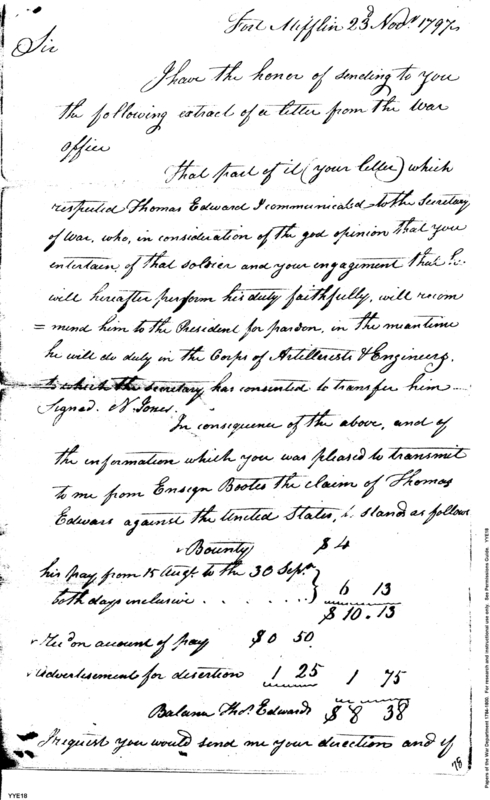 Fort Mifflin 23d Novr. 1797
Sir
I have the honor of sending to you
the following extract of a letter from the War
office
That part of it (your letter) which
respected Thomas Edward I communicated to the Secretary
of War, who, in consideration of the god opinion that you
entertain of that soldier and your engagement that he
will hereafter perform his duty faithfully, will recom
= mend him to the President for pardon, in the meantime
he will do duty in the Corps of Artillerists & Engineers,
to which the secretary has consented to transfer him
Signed. N. Jones.
In consequence of the above, and of
the information which you was pleased to transmit
to me from Ensign Bootes the claim of Thomas
Edwars against the United States, stands as follows
Bounty $4
his pay from 15 Augt. to the 30 Sept.
both days inclusive . . . . . . . } 6 13
$10.13
Recd on account of pay $0 50
Advertisement for desertion 1 25 1 75
Balance Thos. Edwards $8 38
I request you would send me your direction and if
75
YYE18
Papers of the War Department 1784-1800. For research and instructional use only. See Permissions Guide. YYE18